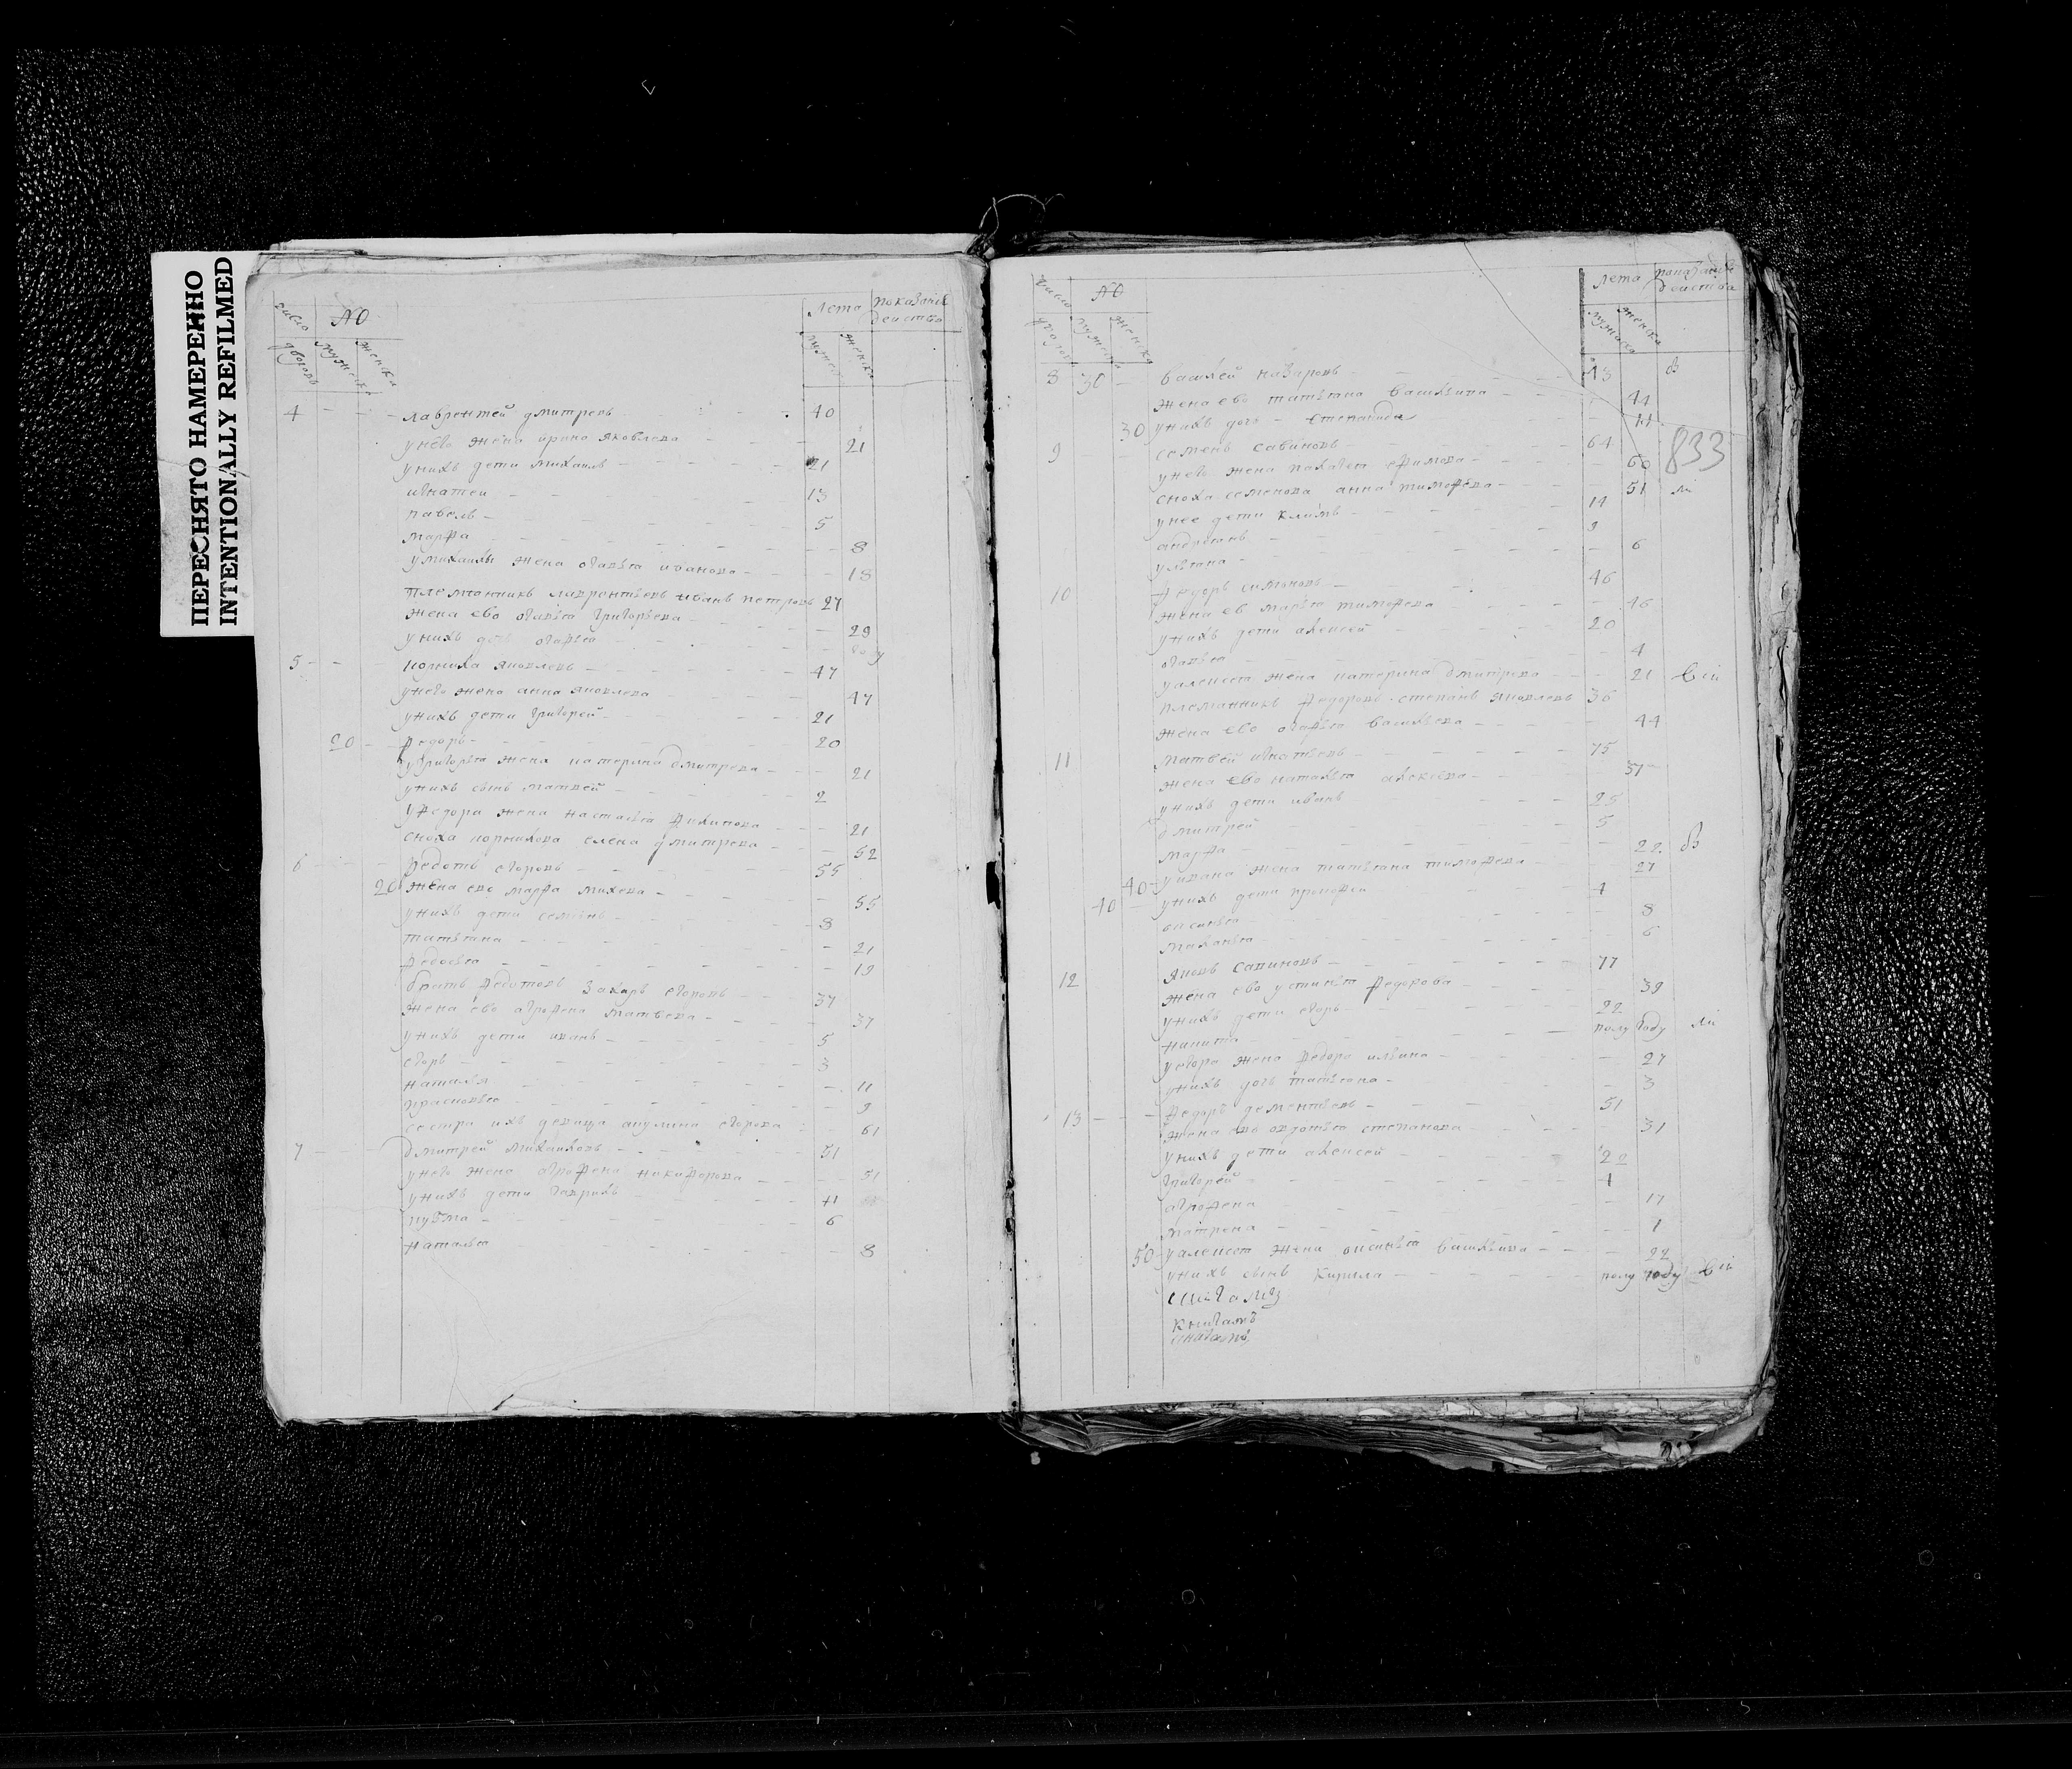 ПЕРЕСНЯТО НАМЕРЕННО
INTENTIONALLY REFILMED
число дворовъ
№
мужеска
женска
Лета
мужес
женска
показание действа
4 лаврентей дмитревъ 40
унего жена ирина яковлева 21
унихъ дети михаилъ 21
игнатеи 13
павелъ 5
марфа 8
умихаилы жена огафья иванова 18
племянникъ лаврентьевъ иванъ петровъ 27
жена ево огафья григорьева 29
унихъ дочь огафья году
5 корнила яковлевъ 47
унего жена анна яковлева 47
унихъ дети григорей 21
20 федоръ 20
угригорья жена катерина дмитрева 21
унихъ сынъ матвей 2
уфедора жена настасья филипова 21
сноха корнилова елена дмитрева 52
6 федотъ егоровъ 55
20 жена ево марфа михева 55
унихъ дети семенъ 8
татьяна 21
федосья 19
братъ федотовъ захаръ егоровъ 37
жена ево агрофена матвева 37
унихъ дети иванъ 5
егоръ 3
наталья 11
прасковья 9
сестра ихъ девица акулина егорова 61
7 дмитрей михаиловъ 51
унего жена агрофена никифорова 51
унихъ дети гаврилъ 11
кузма 6
наталья 8
число дворовъ
№
мужеска
женска
Лета
мужеска
женска
показание действа
8 30 василей назаровъ 43
жена ево татьяна васильина 44
30 унихъ дочь степанида 11
833
9 семенъ савиновъ 64
унего жена пелагея ефимова 60
сноха семенова анна тимофева 51
унее дети климъ 14
андреянъ 9
ульяна 6
10 федоръ симоновъ 46
жена ев марья тимофева 46
унихъ дети алексей 20
огафья 4
уалексея жена катерина дмитрева 21
племянникъ федоровъ степанъ яковлевъ 36
жена ево огафья васильева 44
11 матвей игнатьевъ 75
жена ево наталья алексеева 57
унихъ дети иванъ 25
дмитрей 5
марфа 22
40 уивана жена татьяна тимофева 27
40 унихъ дети прокофей 4
оксинья 8
маланья 6
12 яковъ савиновъ 77
жена ево устинья федорова 39
унихъ дети егоръ 22
никита полу году
уегора жена федора ильина 27
унихъ дочь татьяна 3
13 федоръ дементьевъ 51
жена ево овдотья степанова 31
унихъ дети алексей 20
григорей 4
агрофена 17
матрена 1
50 уалексея жена оксинья васильина 22
унихъ сынъ кирила полу году